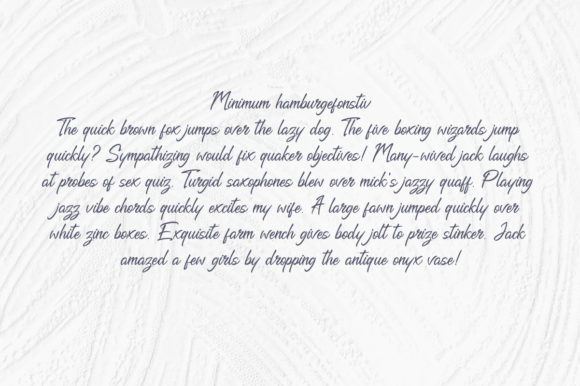 Minimum hamburgefonstiv
The quick brown fox jumps over the lazy dog. The five boxing wizards jump
quickly? Sympathizing would fix quaker objectives! Many-wived jack laughs
at probes of sex quiz. Turgid saxophones blew over mick's jazzy quaff. Playing
jazz vibe chords quickly excites my wife. A large fawn jumped quickly over
white zinc boxes. Exquisite farm wench gives body jolt to prize stinker. Jack
amazed a few girls by dropping the antique onyx vase!